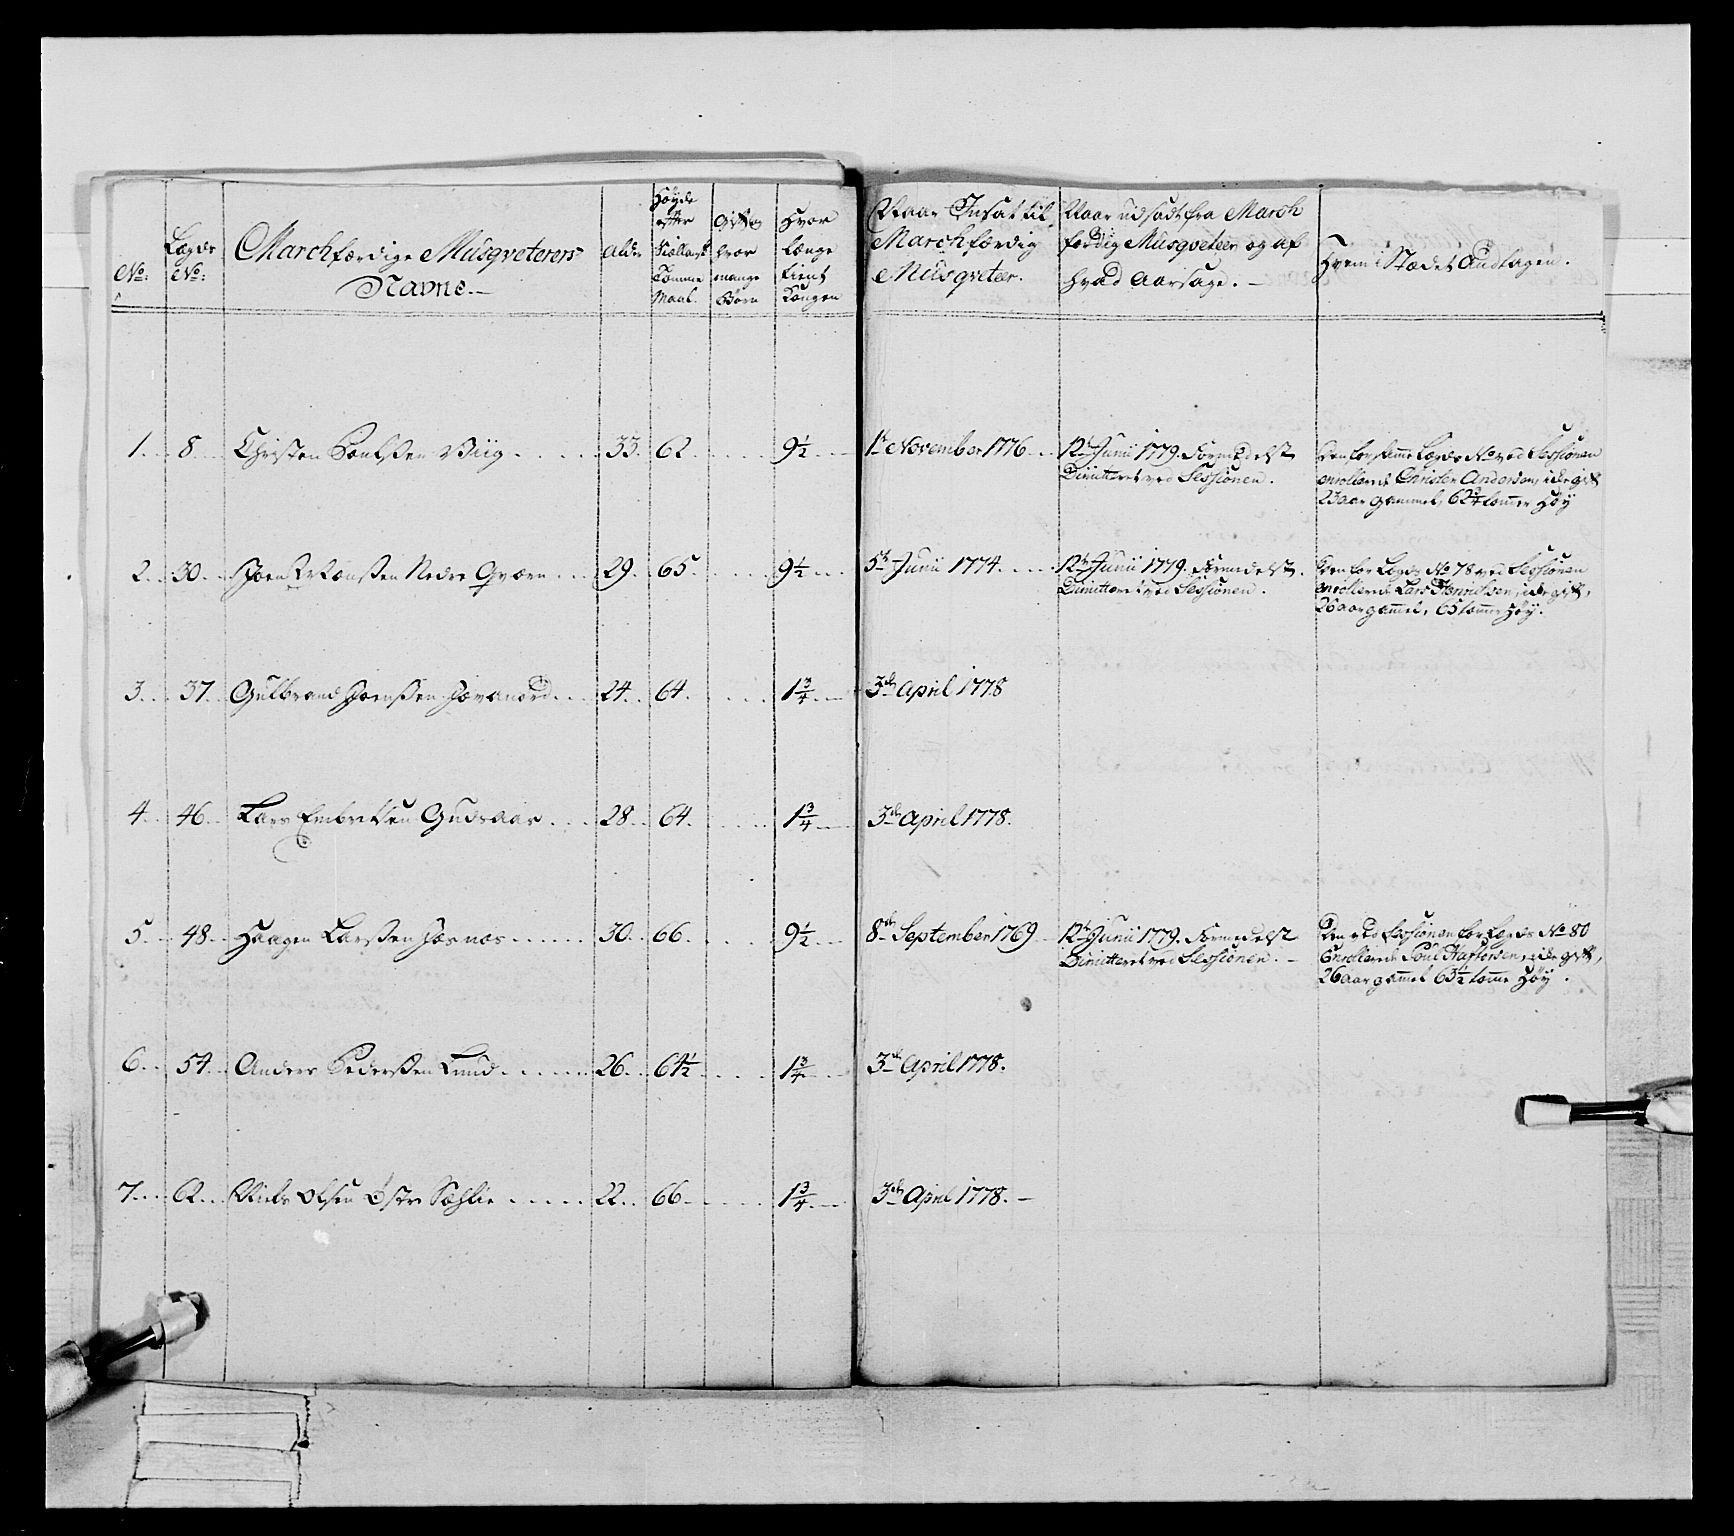 No:
Lægds No:
Marchfærdige Musqveterers Navne.
Alder
Høyde efter Siællands Tomme Maal.
Gift og hvor mange Børn
Hvor længe tient Kongen
Naar Insat til Marchfærdig Musqveteer.
Naar udsadt fra Marchfærdig Musqveteer og af hvad Aarsage.
Hvem i Stædet Andtagen.
1. 8. Christen 33. 62 9½ 1te November 1776 12te Junii 1779. Formedelst
Dimitteret ved Sessionen.
Den for samme Lægds No ved Sessionen
enrollerede Christen Andersen, ide gift
23 aar gammel, 62¾ tomme Høy
2. 30. Joen Nedre Qværn 29. 65 9½ 5te Junii 1774. 12te Junii 1779. Formedelst
Dimitteret ved Sessionen.
Den for Lægds No 78 ved Sessionen
enrollerede Lars Henrichsen, ide gift,
26 aar gammel, 65 tomme Høy.
3. 37. Gulbrand Joensen 24. 64. 1¾ 3de April 1778
4. 46. Lars Embretsen Gudraas 28. 64. 1¾ 3de April 1778.
5. 48. Haagen Larssen 30. 66. 9½ 8de September 1769 12te Junii 1779. Formedelst
Dimitteret ved Sessionen.
Den ved Sessionen for Lægds No 80
Enrollerede Poul Haftorsen, ide gift,
26 aar gammel 63½ tomme Høy.
6. 54. Anders Pederssen Lund 26. 64½ 1¾ 3de April 1778.
7. 62. Niels Olsen Østre Sæhlie 22. 66 1¾ 3de April 1778.